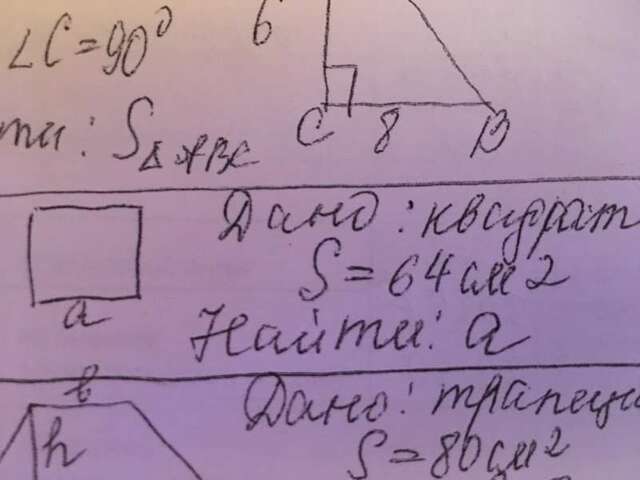 ∠C=90°
S△ABC
6
C
8
B
Дано: квадрат
S=64см2
Найти: a
a
Дано: трапеци
S=80см2
b
h